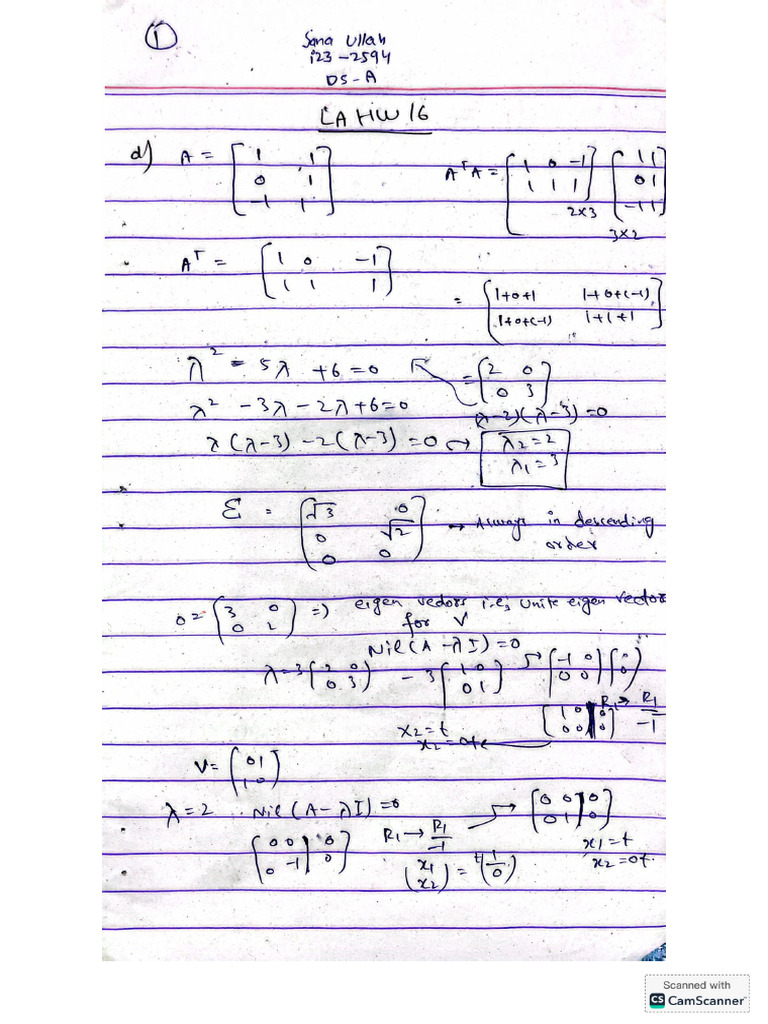 ①
Sana Ullah
i23-2594
DS-A
LA HW 16
d) A = [1 1; 0 1; -1 1]
AᵀA = [1 0 -1; 1 1 1] 2x3 [1 1; 0 1; -1 1] 3x2
Aᵀ = [1 0 -1; 1 1 1]
= [1+0+1 1+0+(-1); 1+0+(-1) 1+1+1]
λ² - 5λ + 6 = 0
= [2 0; 0 3]
λ² - 3λ - 2λ + 6 = 0
(λ-2)(λ-3) = 0
λ(λ-3) - 2(λ-3) = 0 →
λ₂ = 2
λ₁ = 3
Σ = (√3 0; 0 √2; 0 0) → Always in descending
order
= (3 0; 0 2) => eigen vectors i.e; unite eigen vectors
for V
Nil(A - λI) = 0
λ=3 (2 0; 0 3) - 3 [1 0; 0 1] → (-1 0; 0 0 | 0; 0)
[1 0 | 0; 0 0 | 0] R₁ → R₁/-1
x₂ = t
x₂ = 0t
V = (0 1; 1 0)
λ = 2 Nil(A - λI) = 0 → [0 0 | 0; 0 1 | 0]
(0 0 | 0; 0 -1 | 0) R₁ → R₁/-1
x₁ = t
x₂ = 0t.
(x₁; x₂) = t(1; 0)
Scanned with
CS CamScanner